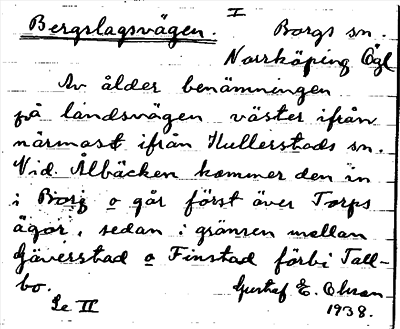 I
Bergslagsvägen. Borgs sn.
Norrköping Ögl
Av ålder benämningen
på landsvägen väster ifrån
närmast ifrån Kullerstads sn.
Vid Ålbäcken kommer den in
i Borg o går först över Torps
ägor, sedan i gränsen mellan
Gäverstad o Finstad förbi Tall-
bo.
Se II
Gustaf E. Olsson
1938.